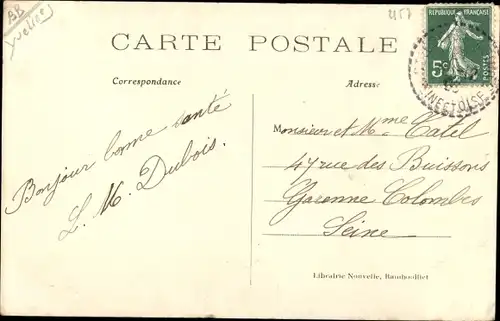 BB
Yvelines
457
RÉPUBLIQUE FRANÇAISE
5c
POSTES
CARTE POSTALE
Correspondance
Adresse
Bonjour bonne santé
L. M. Dubois.
Monsieur et Mme Catel
47 rue des Buissons
Garenne Colombes
Seine
Librairie Nouvelle, Rambouillet